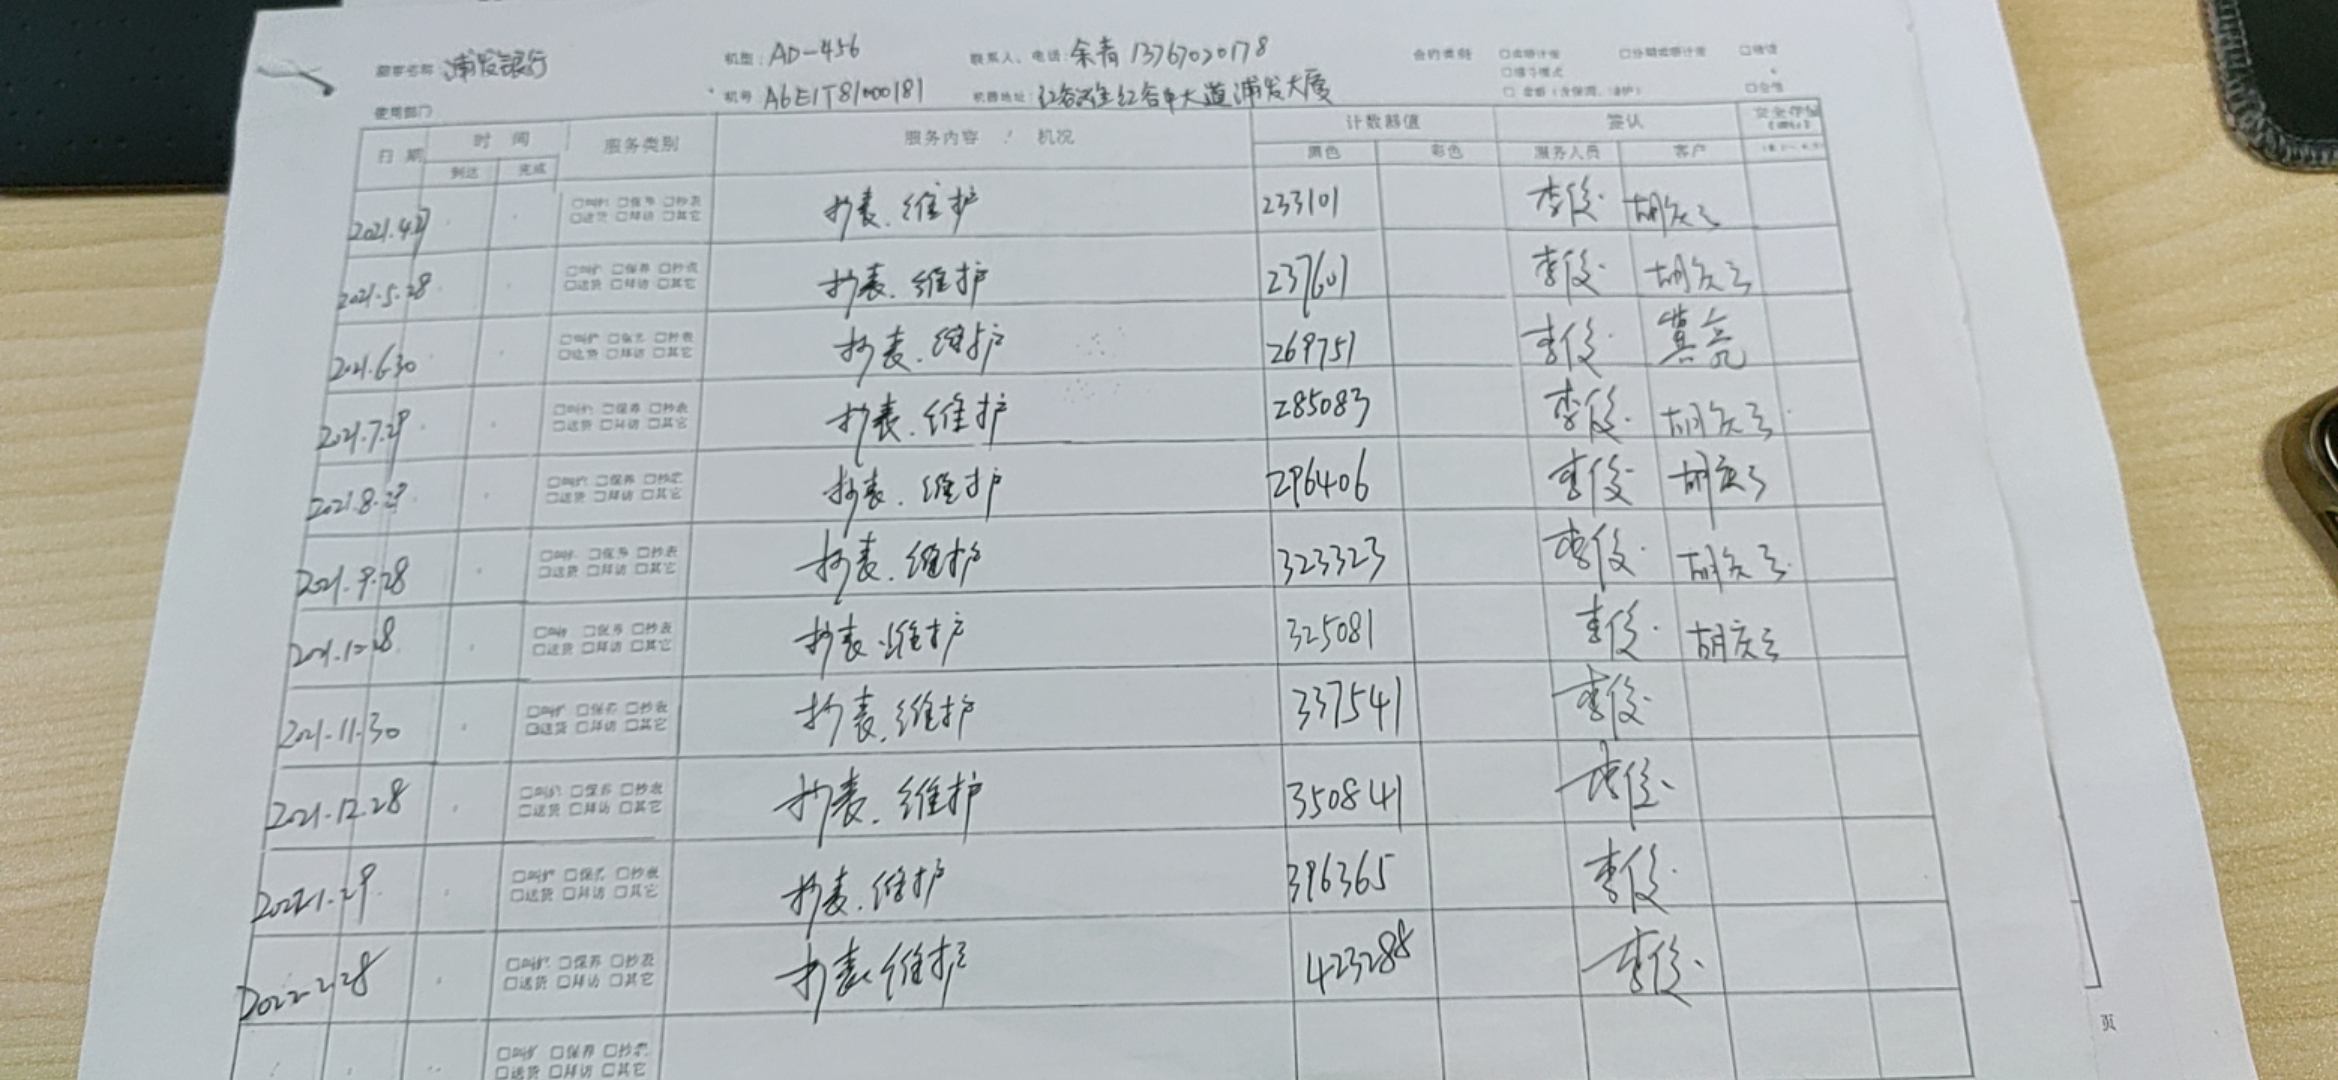 顾客名称：浦发银行 机型：AD-456 联系人、电话：余青 13767020178 合约类别 □卖断计张 □分期卖断计张 □租赁
□碳粉模式
使用部门 机号 A6E1T81000181 机器地址：红谷滩红谷中大道浦发大厦 □全保（含保固、维护） □全包
日期 时间 服务类别 服务内容 / 机况 计数器值 签认
到达 完成 黑色 彩色 服务人员 客户
2021.4.27 □叫修 □保养 □抄表 □送货 □拜访 □其它 抄表.维护 233101 李俊 胡庆云
2021.5.28 □叫修 □保养 □抄表 □送货 □拜访 □其它 抄表.维护 237601 李俊 胡庆云
2021.6.30 □叫修 □保养 □抄表 □送货 □拜访 □其它 抄表.维护 269751 李俊
2021.7.29 □叫修 □保养 □抄表 □送货 □拜访 □其它 抄表.维护 285083 李俊 胡庆云
2021.8.29 □叫修 □保养 □抄表 □送货 □拜访 □其它 抄表.维护 296406 李俊 胡庆云
2021.9.28 □叫修 □保养 □抄表 □送货 □拜访 □其它 抄表.维护 323323 李俊 胡庆云
2021.10.28 □叫修 □保养 □抄表 □送货 □拜访 □其它 抄表.维护 325081 李俊 胡庆云
2021.11.30 □叫修 □保养 □抄表 □送货 □拜访 □其它 抄表.维护 337541 李俊
2021.12.28 □叫修 □保养 □抄表 □送货 □拜访 □其它 抄表.维护 350841 李俊
2022.1.29 □叫修 □保养 □抄表 □送货 □拜访 □其它 抄表.维护 396365 李俊
2022.2.28 □叫修 □保养 □抄表 □送货 □拜访 □其它 抄表.维护 423288 李俊
□叫修 □保养 □抄表 □送货 □拜访 □其它
页